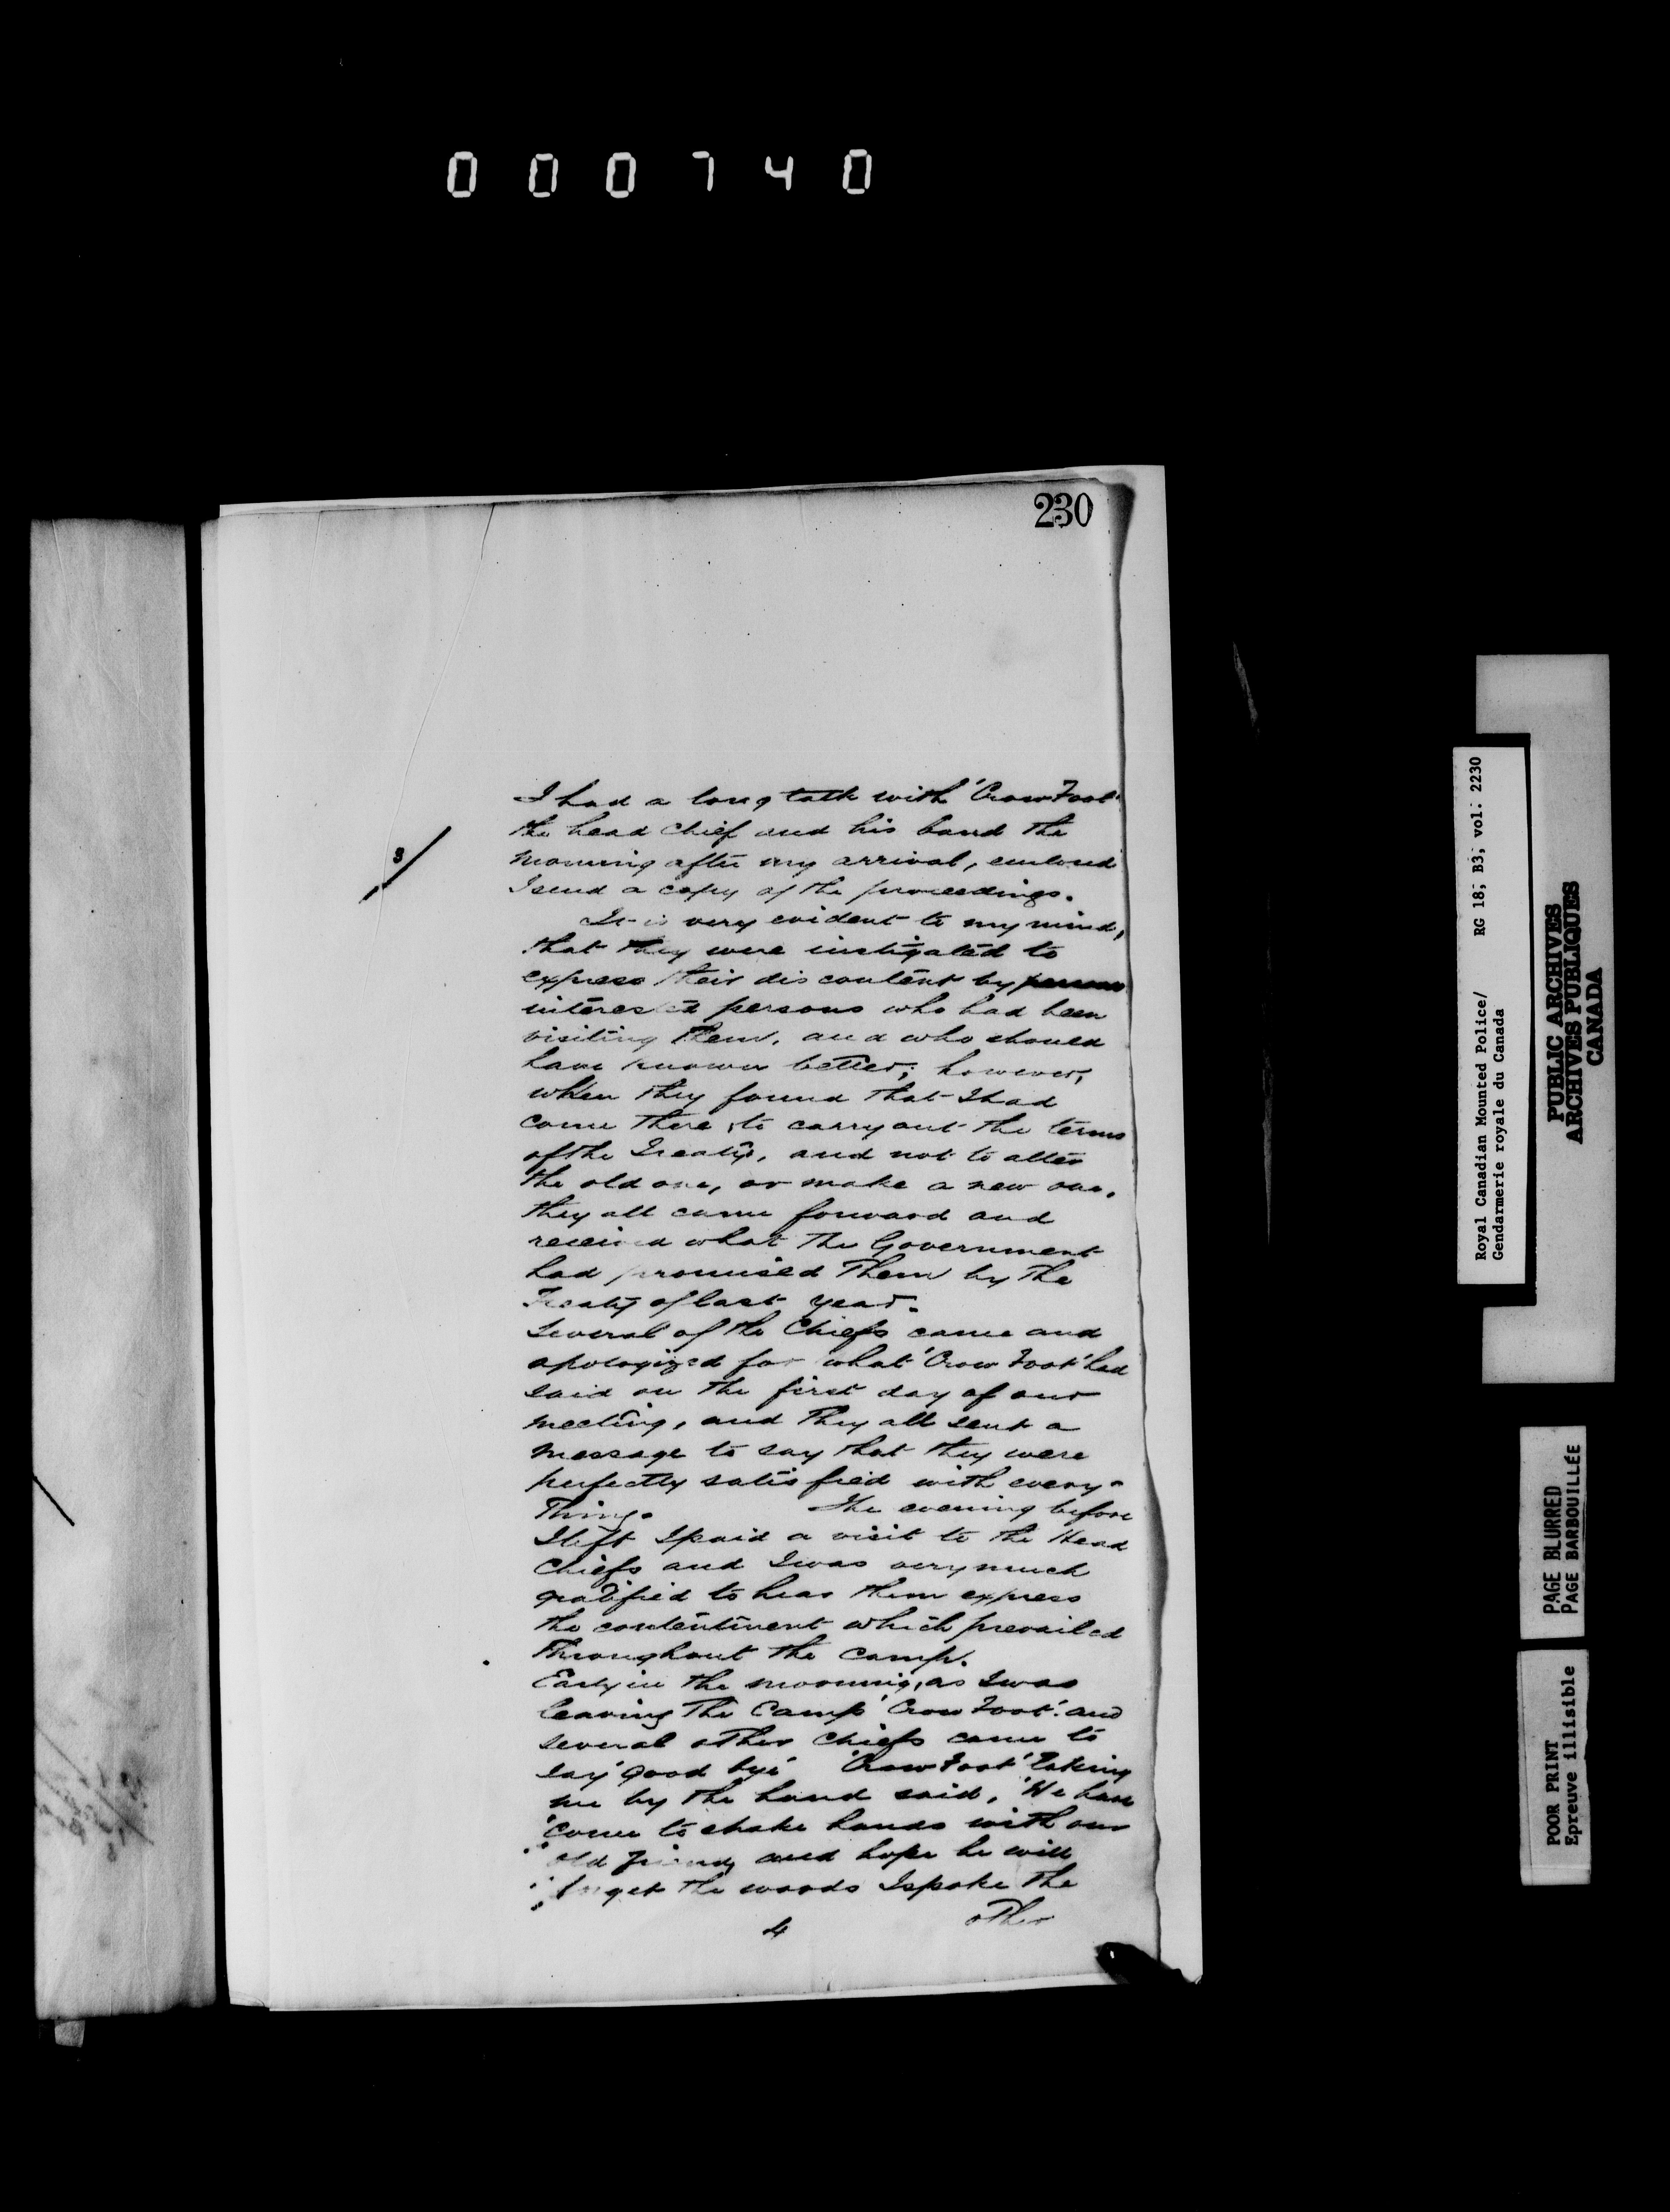 000740
230
I had a long talk with 'Crow Foot'
the head chief and his band the
morning after my arrival, enclosed
3
I send a copy of the proceedings.
It is very evident to my mind,
that they were instigated to
express their discontent by
interested persons who had been
visiting them, and who should
have known better; however,
when they found that I had
come there to carry out the terms
of the Treaty, and not to alter
the old one, or make a new one,
they all came forward and
received what the Government
had promised them by the
Treaty of last year.
Several of the Chiefs came and
apologized for what 'Crow Foot' had
said on the first day of our
meeting, and they all sent a
message to say that they were
perfectly satisfied with every-
thing. The evening before
I left I paid a visit to the Head
Chiefs and I was very much
gratified to hear them express
the contentment which prevailed
throughout the Camp.
Early in the morning, as I was
leaving the Camp 'Crow Foot' and
several other Chiefs came to
say 'good bye' 'Crow Foot' taking
me by the hand said, 'We have
"come to shake hands with our
"old friend, and hope he will
"forget the words I spoke the
other
4
Royal Canadian Mounted Police/ RG 18; B3; vol. 2230
Gendarmerie royale du Canada
PUBLIC ARCHIVES
ARCHIVES PUBLIQUES
CANADA
PAGE BLURRED
PAGE BARBOUILLÉE
POOR PRINT
Epreuve illisible